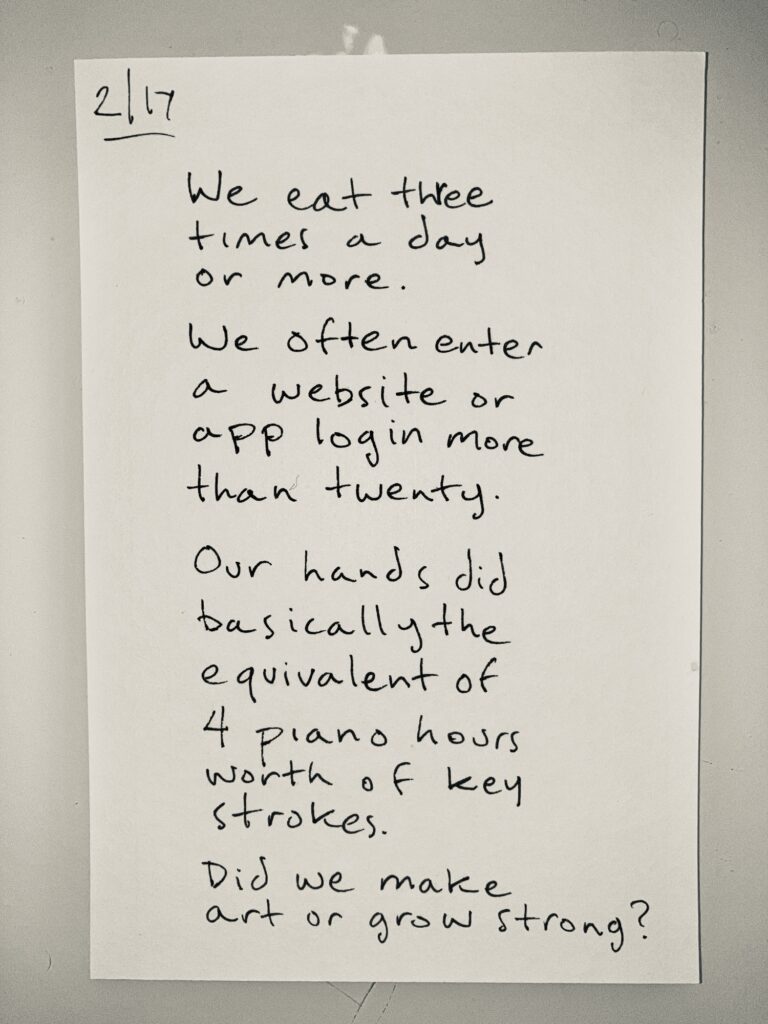 2/17
We eat three
times a day
or more.
We often enter
a website or
app login more
than twenty.
Our hands did
basically the
equivalent of
4 piano hours
worth of key
strokes.
Did we make
art or grow strong?